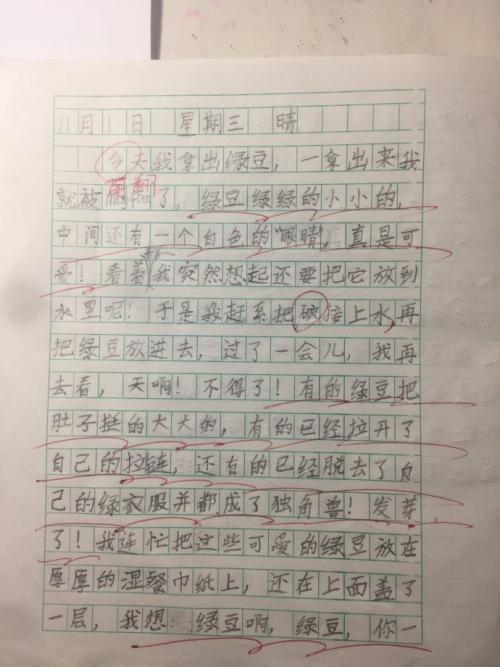 11月1日 星期三 晴
今天我拿出绿豆，一拿出来我
就被萌翻了，绿豆绿绿的小小的，
中间还有一个白色的“眼睛，真是可
爱！看着我突然想起还要把它放到
水里呢！于是我赶系把碗接上水，再
把绿豆放进去，过了一会儿，我再
去看，天啊！不得了！有的绿豆把
肚子挺的大大的，有的已经拉开了
自己的拉链，还有的已经脱去了自
己的绿衣服并都成了独角兽！发芽
了！我连忙把这些可爱的绿豆放在
厚厚的湿餐巾纸上，还在上面盖了
一层，我想：绿豆啊，绿豆，你一